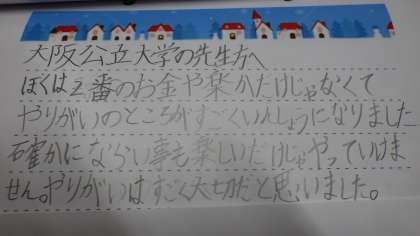 大阪公立大学の先生方へ
ぼくは2番のお金や楽かだけじゃなくて
やりがいのところがすごくいんしょうになりました
確かにならい事も楽しいだけじゃやっていけま
せん。やりがいはすごく大切だと思いました。